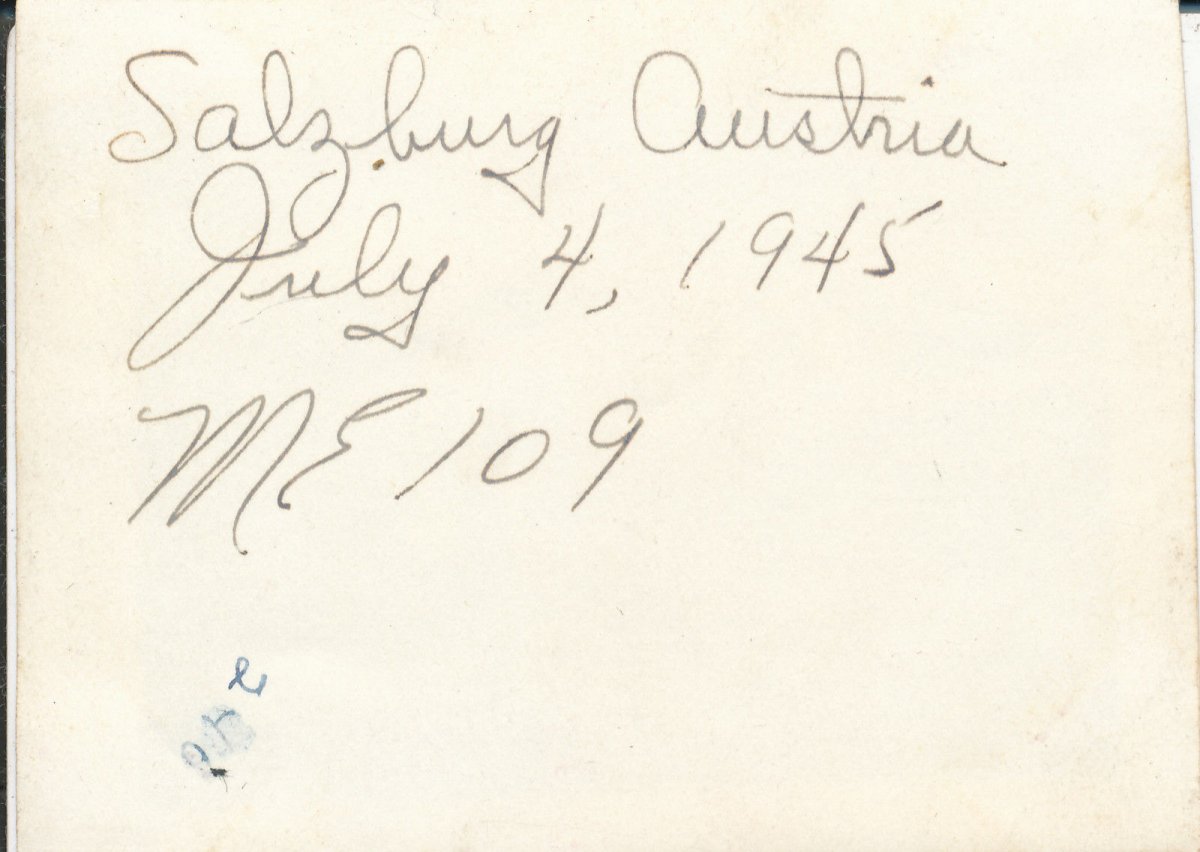 Salzburg Austria
July 4, 1945
ME 109